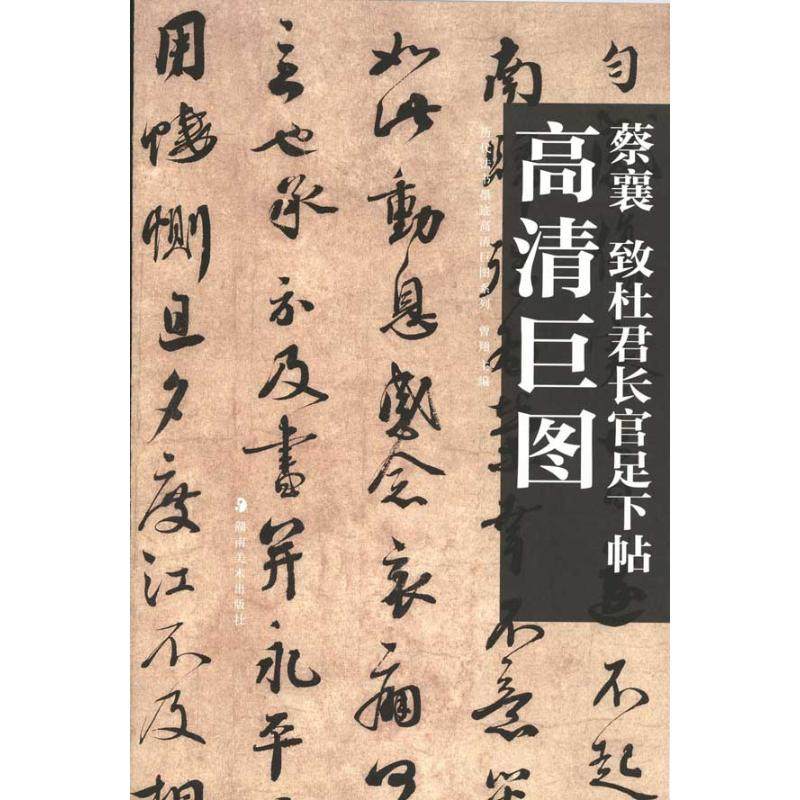 勻 不起
蔡襄 致杜君长官足下帖
高清巨图
南歸 不意
历代法书墨迹高清巨图系列 曾翔 主编
如此動息感念哀痛何
言也承示及書并永平
湖南美术出版社
用悽惻旦夕度江不及相